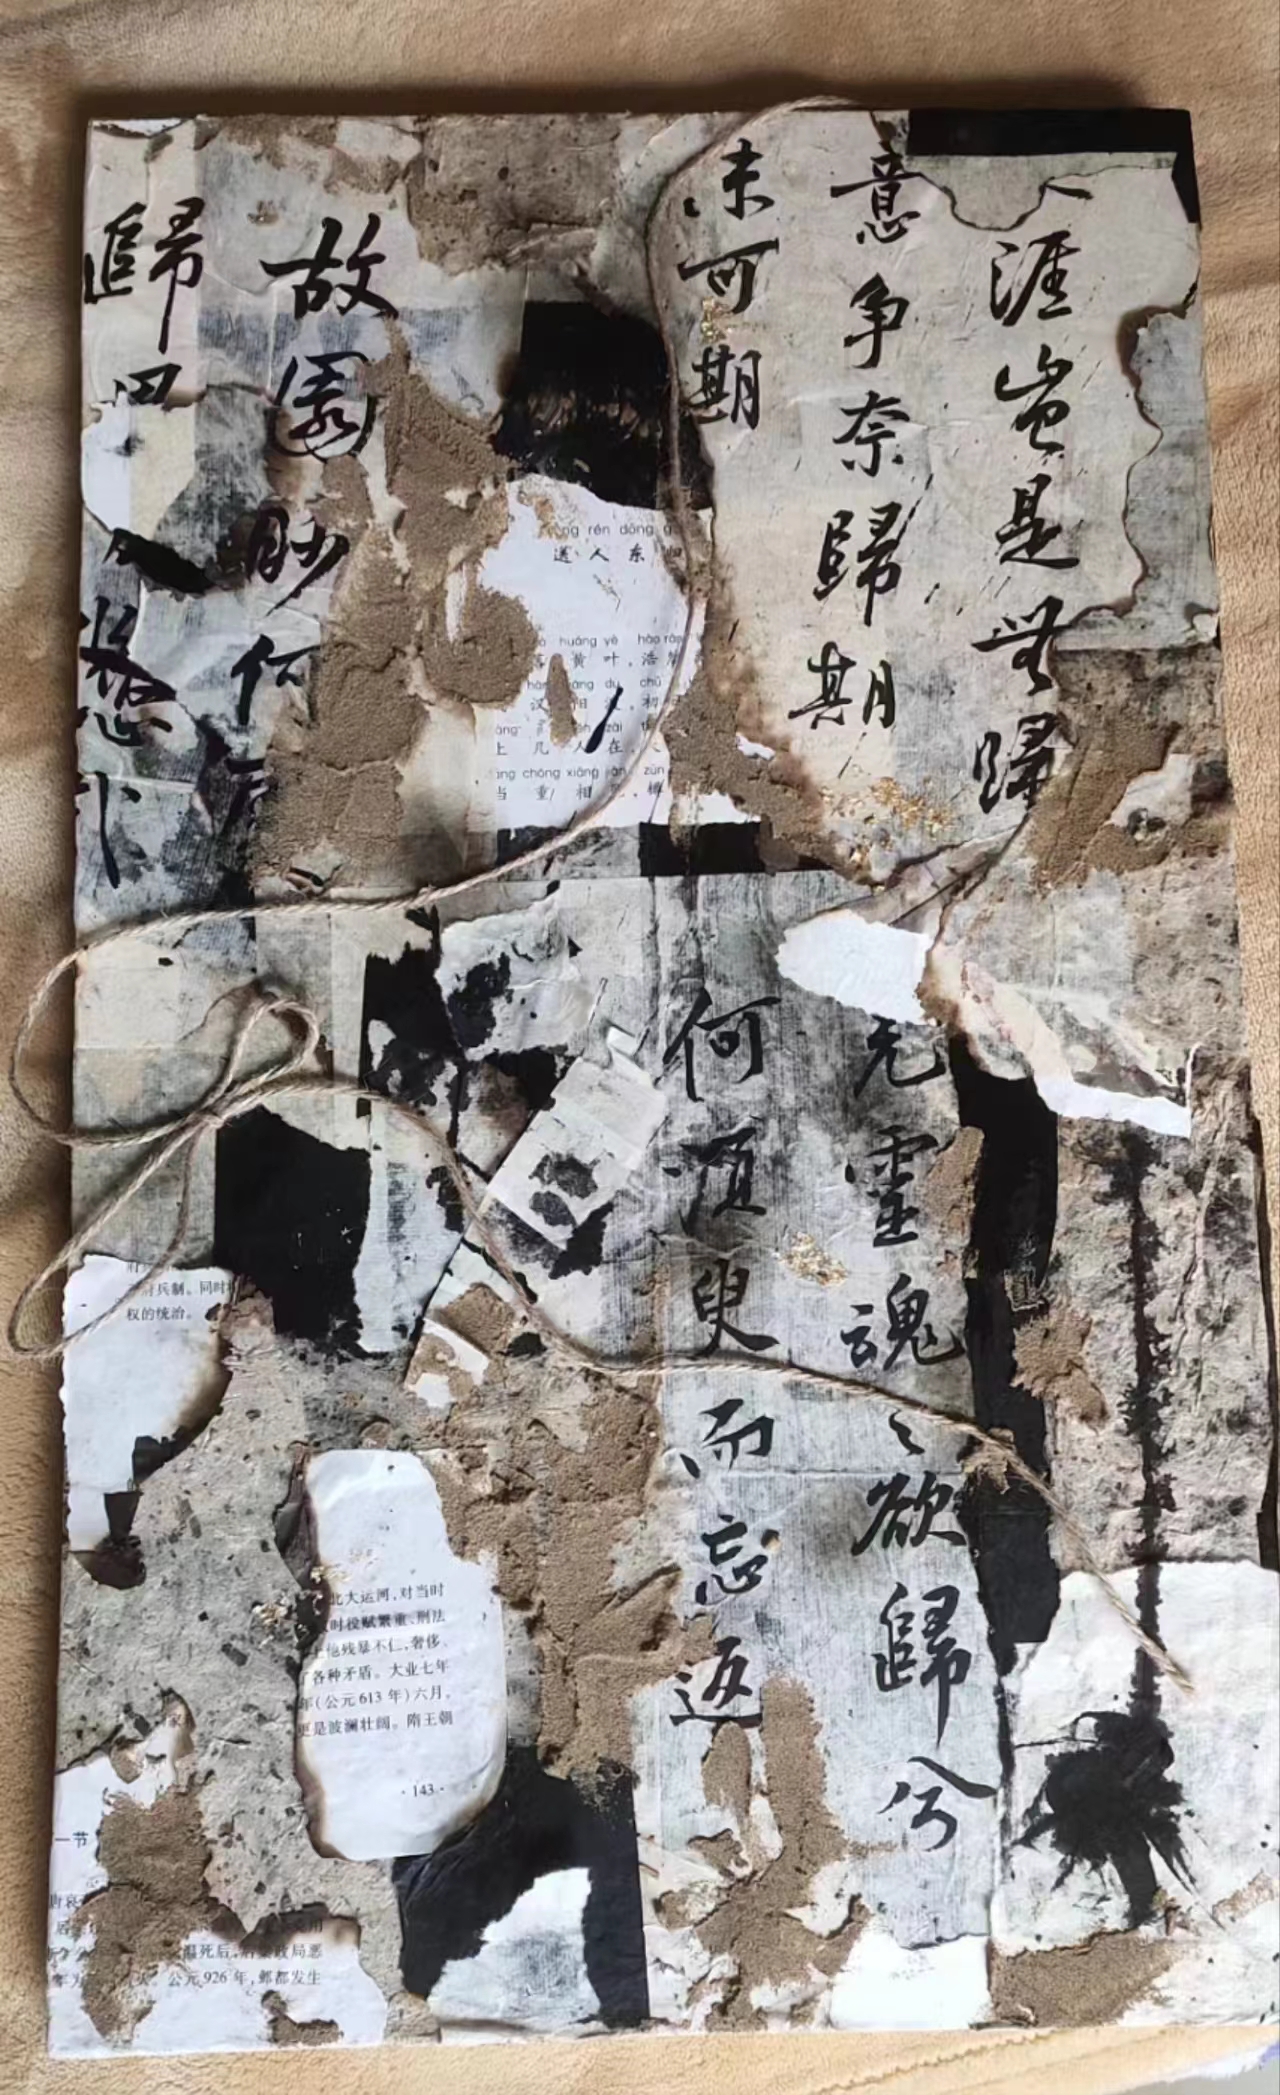 涯岂是無歸
意争奈歸期
未可期
故園眇何
歸思
ng rén dōng g
送人东归
huáng yè hào rán
落黄叶，浩然
汉阳渡，初
上几人在，
chóng xiāng jiàn zūn
当重相见，樽
羌靈魂之欲歸兮
何須臾而忘返
府兵制。同时
权的统治。
北大运河，对当时
时役赋繁重、刑法
上他残暴不仁，奢侈、
各种矛盾。大业七年
年（公元613年）六月，
更是波澜壮阔。隋王朝
·143·
一节
温死后，后梁政局恶
公元926年，邺都发生